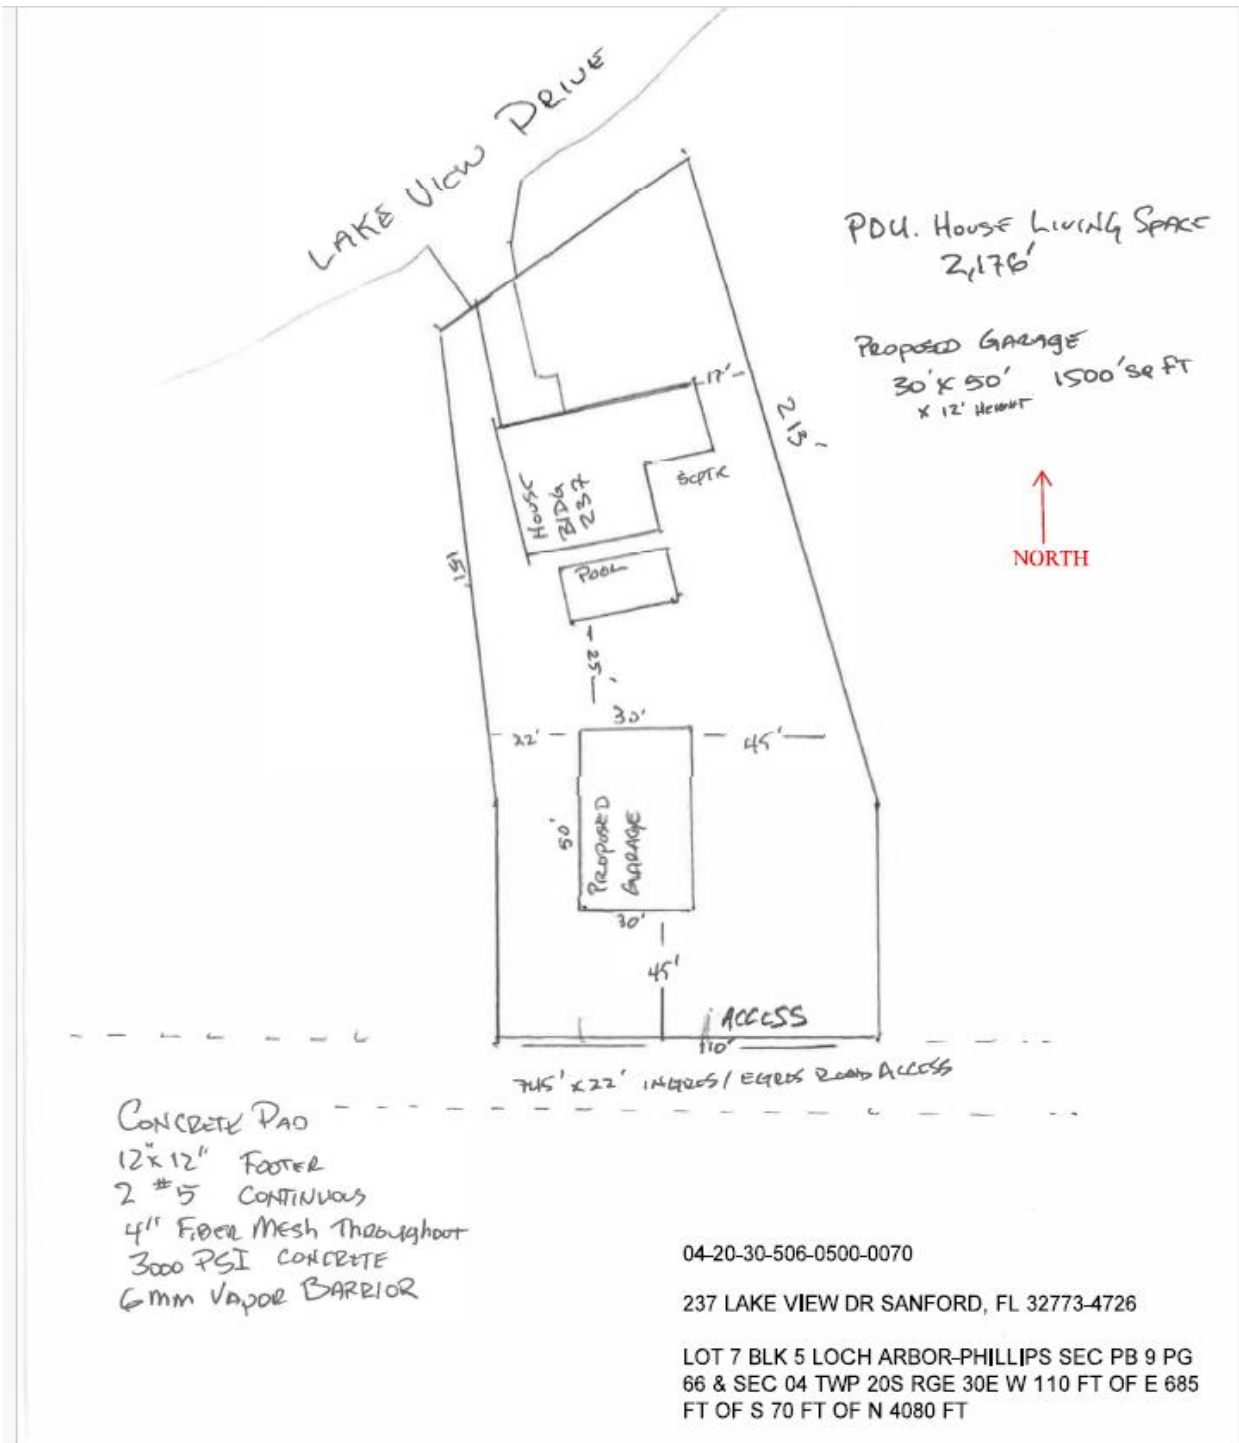 LAKE VIEW DRIVE
PDU. HOUSE LIVING SPACE
2,176'
PROPOSED GARAGE
30' X 50' 1500' SQ FT
X 12' HEIGHT
NORTH
17'
213'
SEPTIC
HOUSE
BLDG
237
151'
POOL
25'
30'
22'
45'
50'
PROPOSED
GARAGE
30'
45'
ACCESS
110'
745' X 22' INGRES / EGRES ROAD ACCESS
CONCRETE PAD
12" X 12" FOOTER
2 #5 CONTINUOUS
4" FIBER MESH THROUGHOUT
3000 PSI CONCRETE
6mm VAPOR BARRIOR
04-20-30-506-0500-0070
237 LAKE VIEW DR SANFORD, FL 32773-4726
LOT 7 BLK 5 LOCH ARBOR-PHILLIPS SEC PB 9 PG
66 & SEC 04 TWP 20S RGE 30E W 110 FT OF E 685
FT OF S 70 FT OF N 4080 FT